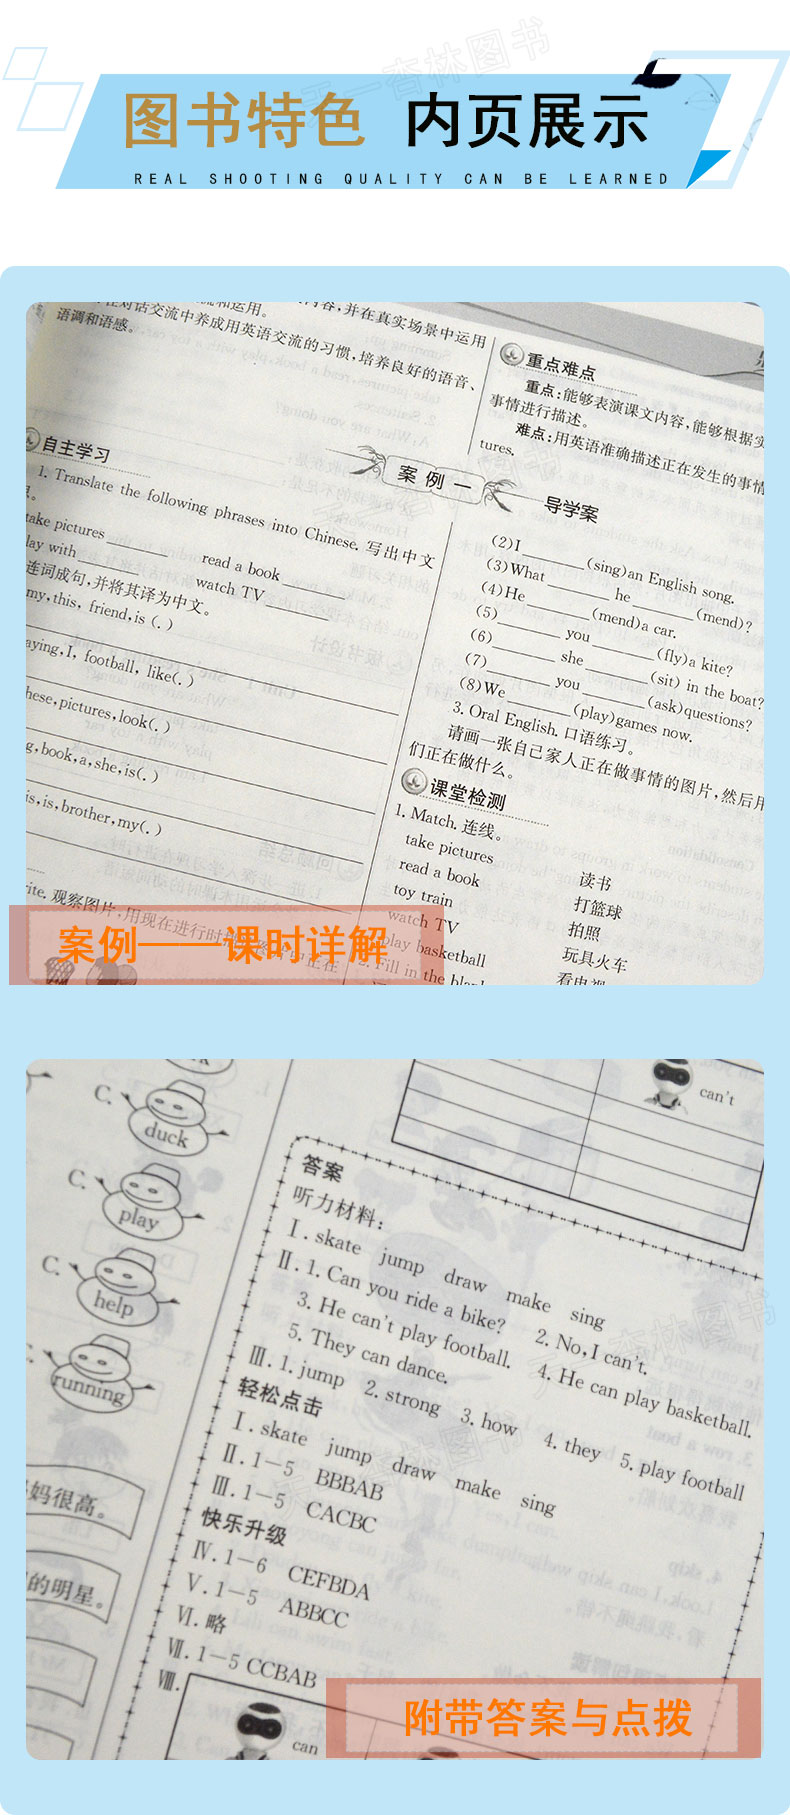 图书特色 内页展示
REAL SHOOTING QUALITY CAN BE LEARNED
天一杏林图书
内容,并在真实场景中运用
对话交流中养成用英语交流的习惯,培养良好的语音、
语调和语感。
重点难点
重点:能够表演课文内容,能够根据实
事情进行描述。
难点:用英语准确描述正在发生的事情
tures.
案例一
导学案
自主学习
1. Translate the following phrases into Chinese. 写出中文
take pictures
read a book
play with
watch TV
连词成句,并将其译为中文。
my,this, friend,is (.)
aying,I, football, like(.)
hese,pictures,look(.)
g,book,a,she,is(.)
is,is,brother,my(.)
rite. 观察图片,用现在进行时
(2)I (sing)an English song.
(3)What he (mend)?
(4)He (mend)a car.
(5) you (fly)a kite?
(6) she (sit) in the boat?
(7) you (ask)questions?
(8)We (play)games now.
3. Oral English. 口语练习。
请画一张自己家人正在做事情的图片,然后用
们正在做什么。
课堂检测
1. Match. 连线。
take pictures 读书
read a book 打篮球
toy train 拍照
watch TV 玩具火车
play basketball 看电视
2. Fill in the blan
案例——课时详解
C. duck
C. play
C. help
running
妈很高。
的明星。
can't
答案
听力材料:
Ⅰ. skate jump draw make sing
Ⅱ. 1. Can you ride a bike? 2. No,I can't.
3. He can't play football. 4. He can play basketball.
5. They can dance.
Ⅲ. 1. jump 2. strong 3. how 4. they 5. play football
轻松点击
Ⅰ. skate jump draw make sing
Ⅱ. 1—5 BBBAB
Ⅲ. 1—5 CACBC
快乐升级
Ⅳ. 1—6 CEFBDA
Ⅴ. 1—5 ABBCC
Ⅵ. 略
Ⅶ. 1—5 CCBAB
Ⅷ.
can
附带答案与点拨